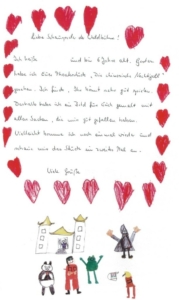 Liebe Schauspieler der Waldbühne!
Ich heiße und bin 6 Jahre alt. Gestern
habe ich Euer Theaterstück „Die chinesische Nachtigall“
gesehen. Ich finde, Ihr könnt sehr gut spielen.
Deshalb habe ich ein Bild für Euch gemalt mit
allen Sachen, die mir gut gefallen haben.
Vielleicht komme ich noch einmal wieder und
schaue mir das Stück ein zweites Mal an.
Viele Grüße